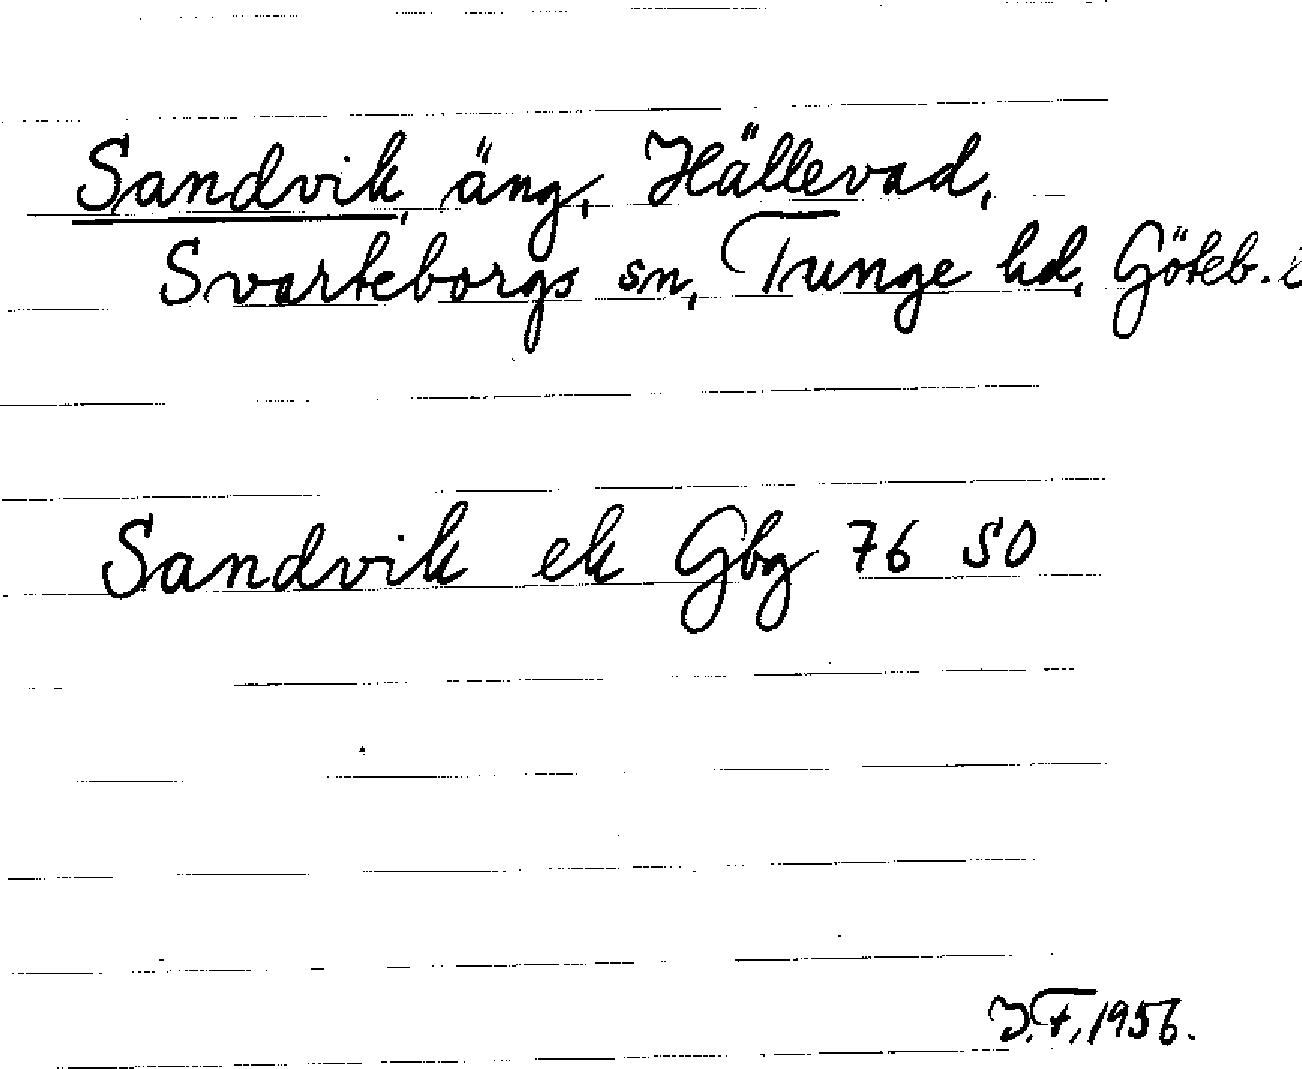 Sandvik, äng, Hällevad,
Svarteborgs sn, Tunge hd, Göteb.
Sandvik ek Gbg 76 SO
J.F. 1956.